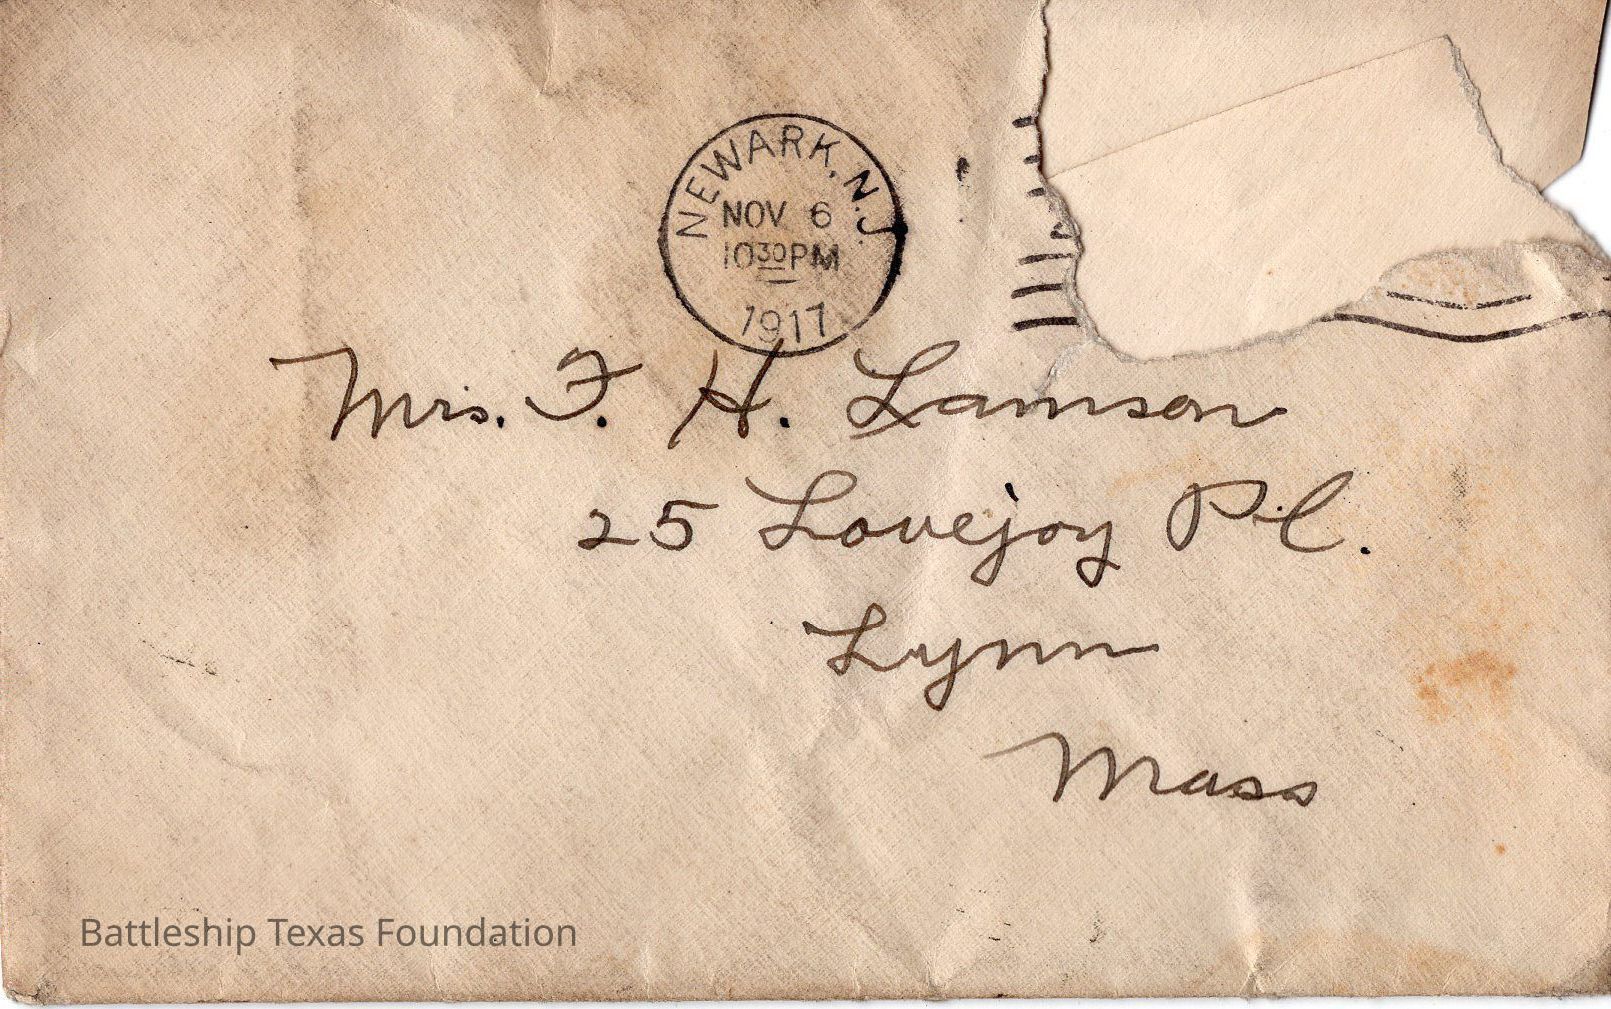 NEWARK, N.J.
NOV 6
10 30 PM
1917
Mrs. F. H. Lamson
25 Lovejoy Pl.
Lynn
Mass
Battleship Texas Foundation